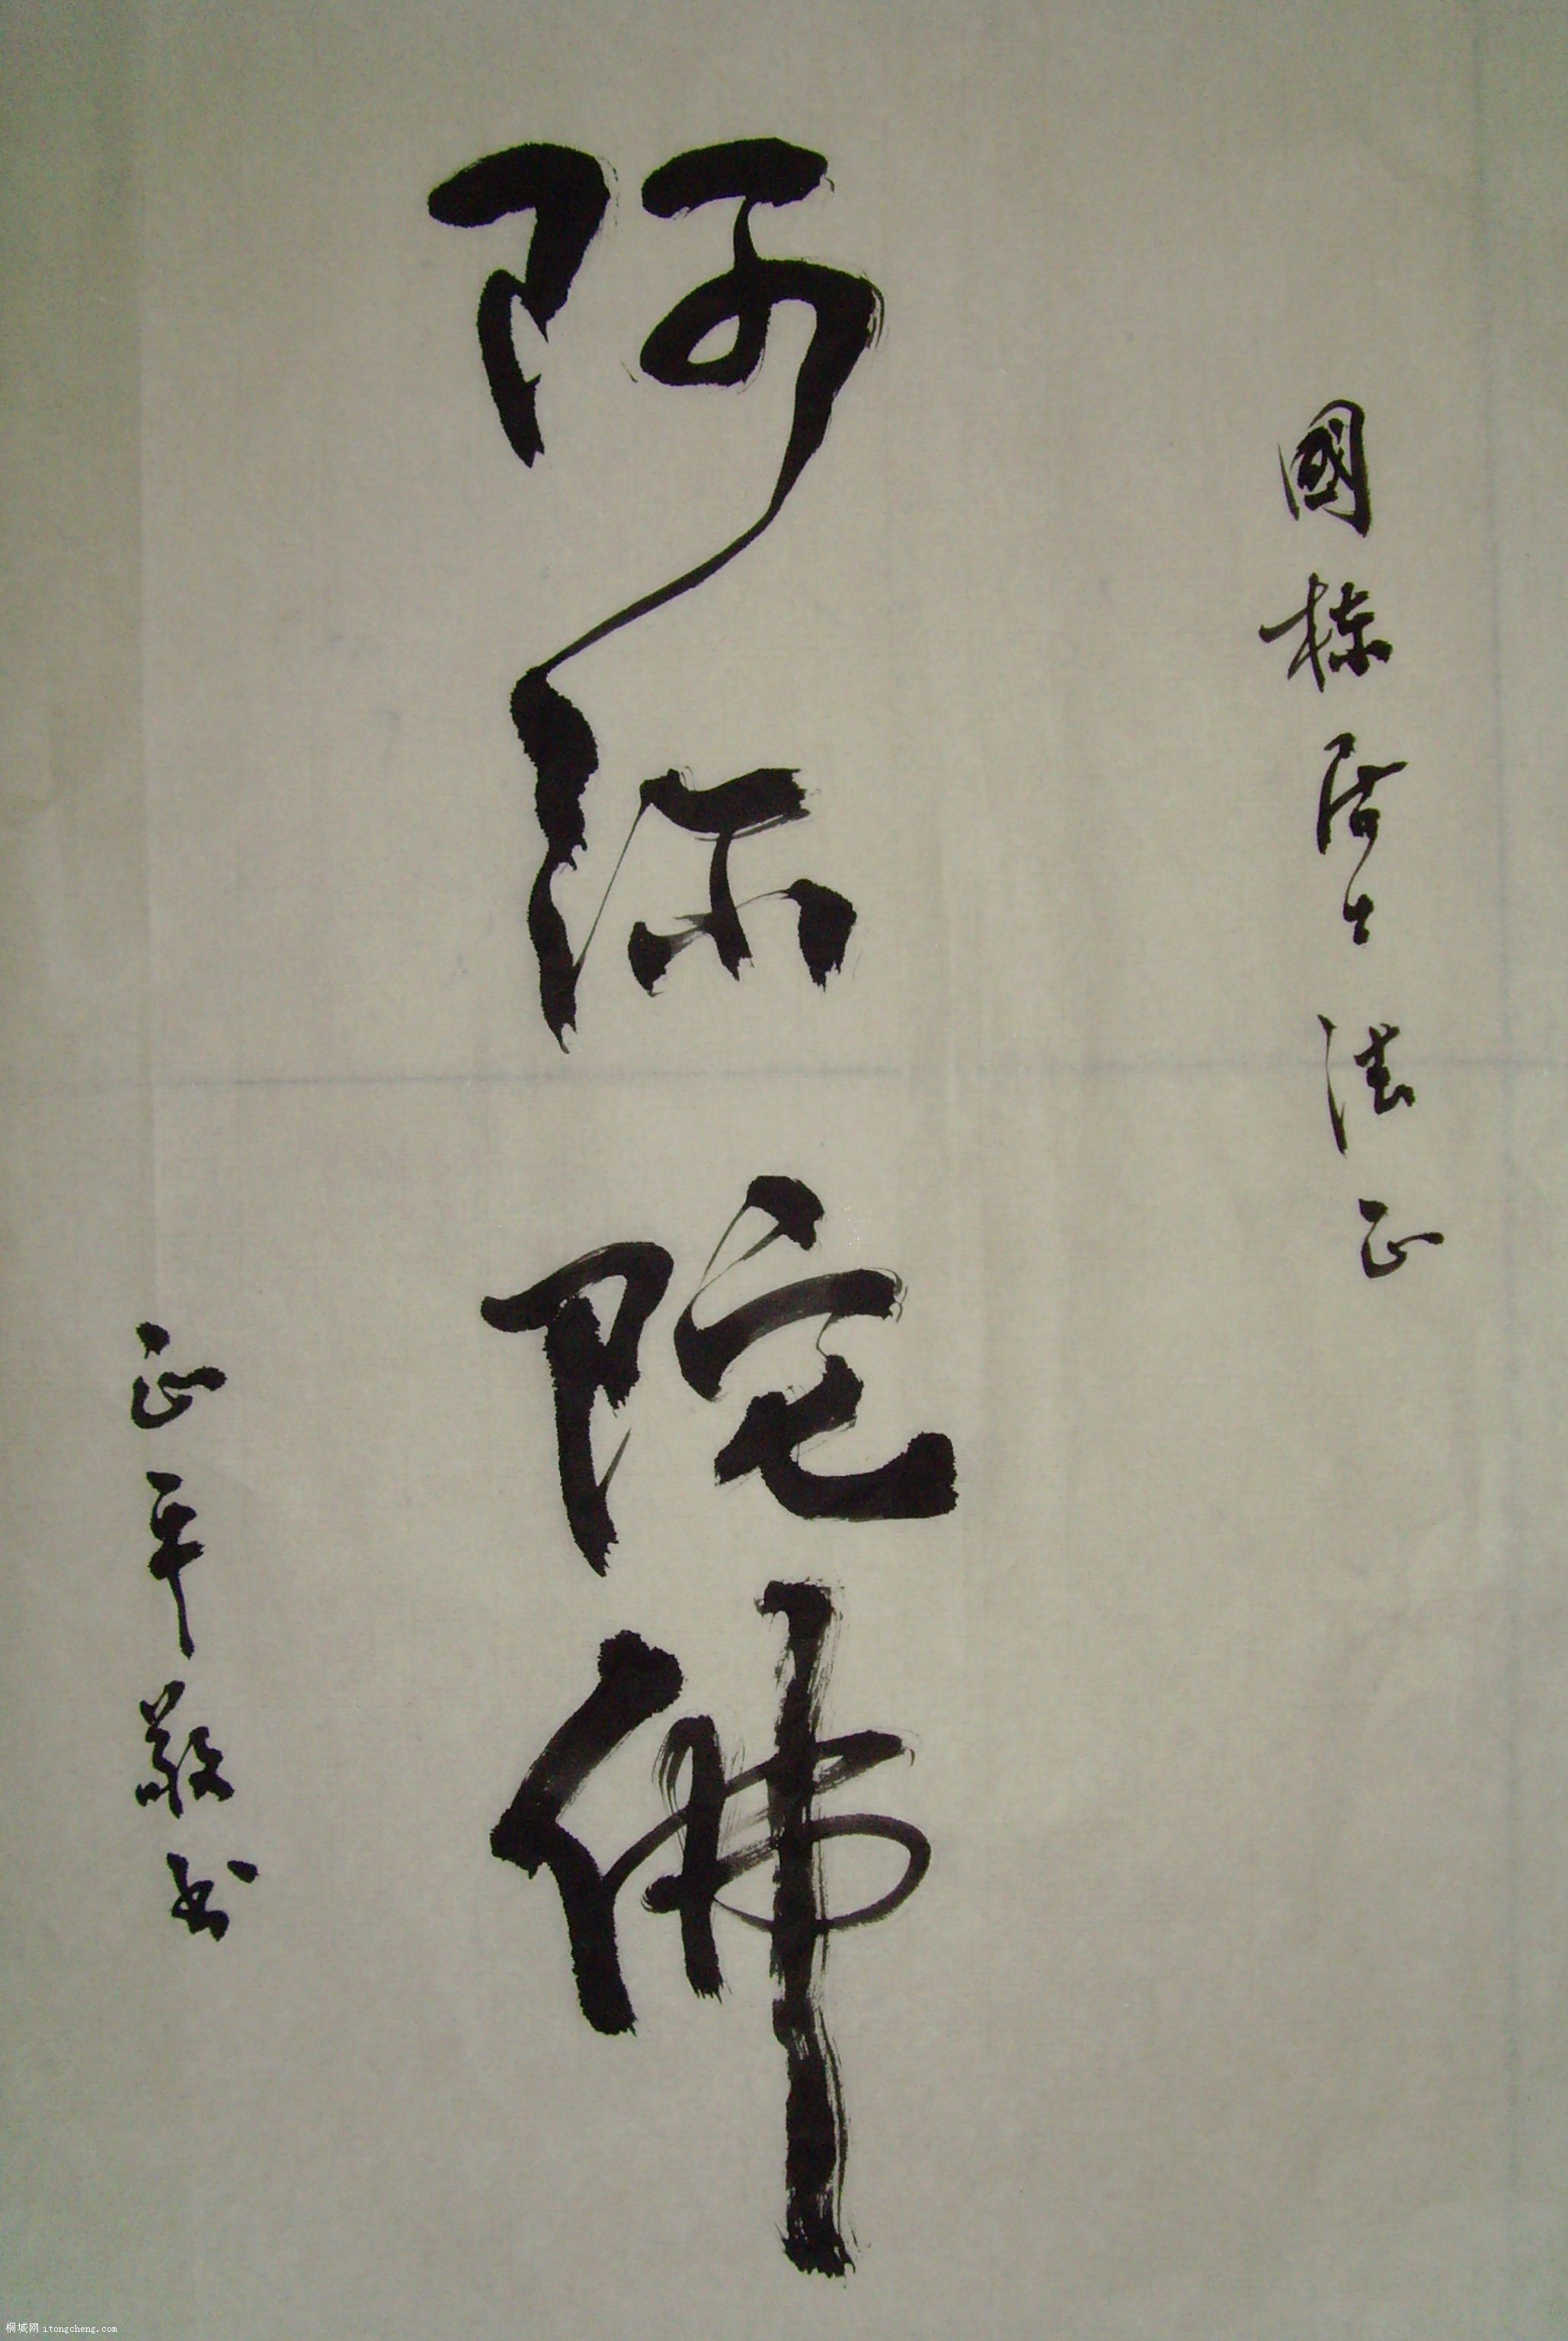 國棟居士法正
阿弥陀佛
正平敬书
桐城网 itongcheng.com